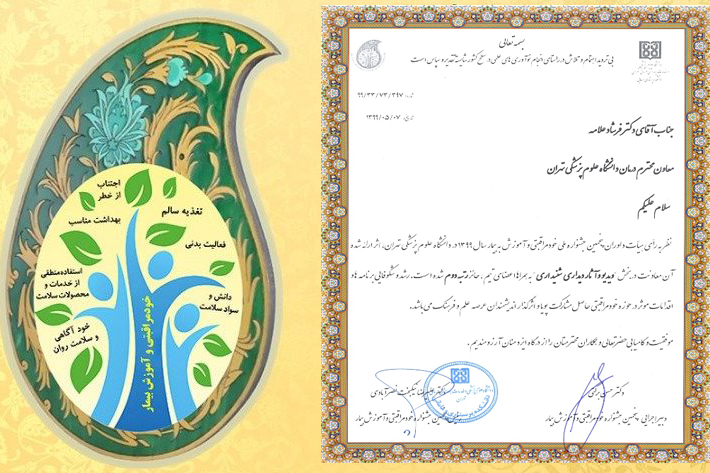 اجتناب
از خطر
تغذیه سالم
بهداشت مناسب
فعالیت بدنی
استفاده‌منطقی
از خدمات و
محصولات سلامت
دانش و
سواد سلامت
خود آگاهی
و سلامت روان
خودمراقبتی و آموزش بیمار
بسمه تعالی
بی تردید اهتمام و تلاش در راستای انجام نوآوری های علمی در سطح کشور شایسته تقدیر و سپاس است
۹۹/۳۳/۷۳/۳۹۷
۱۳۹۹/۰۵/۰۷
جناب آقای دکتر فرشاد علامه
معاون محترم درمان دانشگاه علوم پزشکی تهران
سلام علیکم
نظر به رای هیات داوران پنجمین جشنواره ملی خودمراقبتی و آموزش به بیمار سال ۱۳۹۹ در دانشگاه علوم پزشکی تهران، اثر ارائه شده
آن معاونت در بخش "ویدیو و آثار دیداری شنیداری" به همراه اعضای تیم، حائز رتبه دوم شده است. رشد و شکوفایی برنامه ها و
اقدامات موثر در حوزه خودمراقبتی حاصل مشارکت پویا و اثرگذار اندیشمندان عرصه علم و فرهنگ می باشد.
موفقیت و کامیابی حضرتعالی و همکاران محترمتان را از درگاه ایزد منان آرزومندیم.
دکتر
دبیر اجرایی پنجمین جشنواره خودمراقبتی و آموزش بیمار
پنجمین جشنواره خودمراقبتی و آموزش بیمار